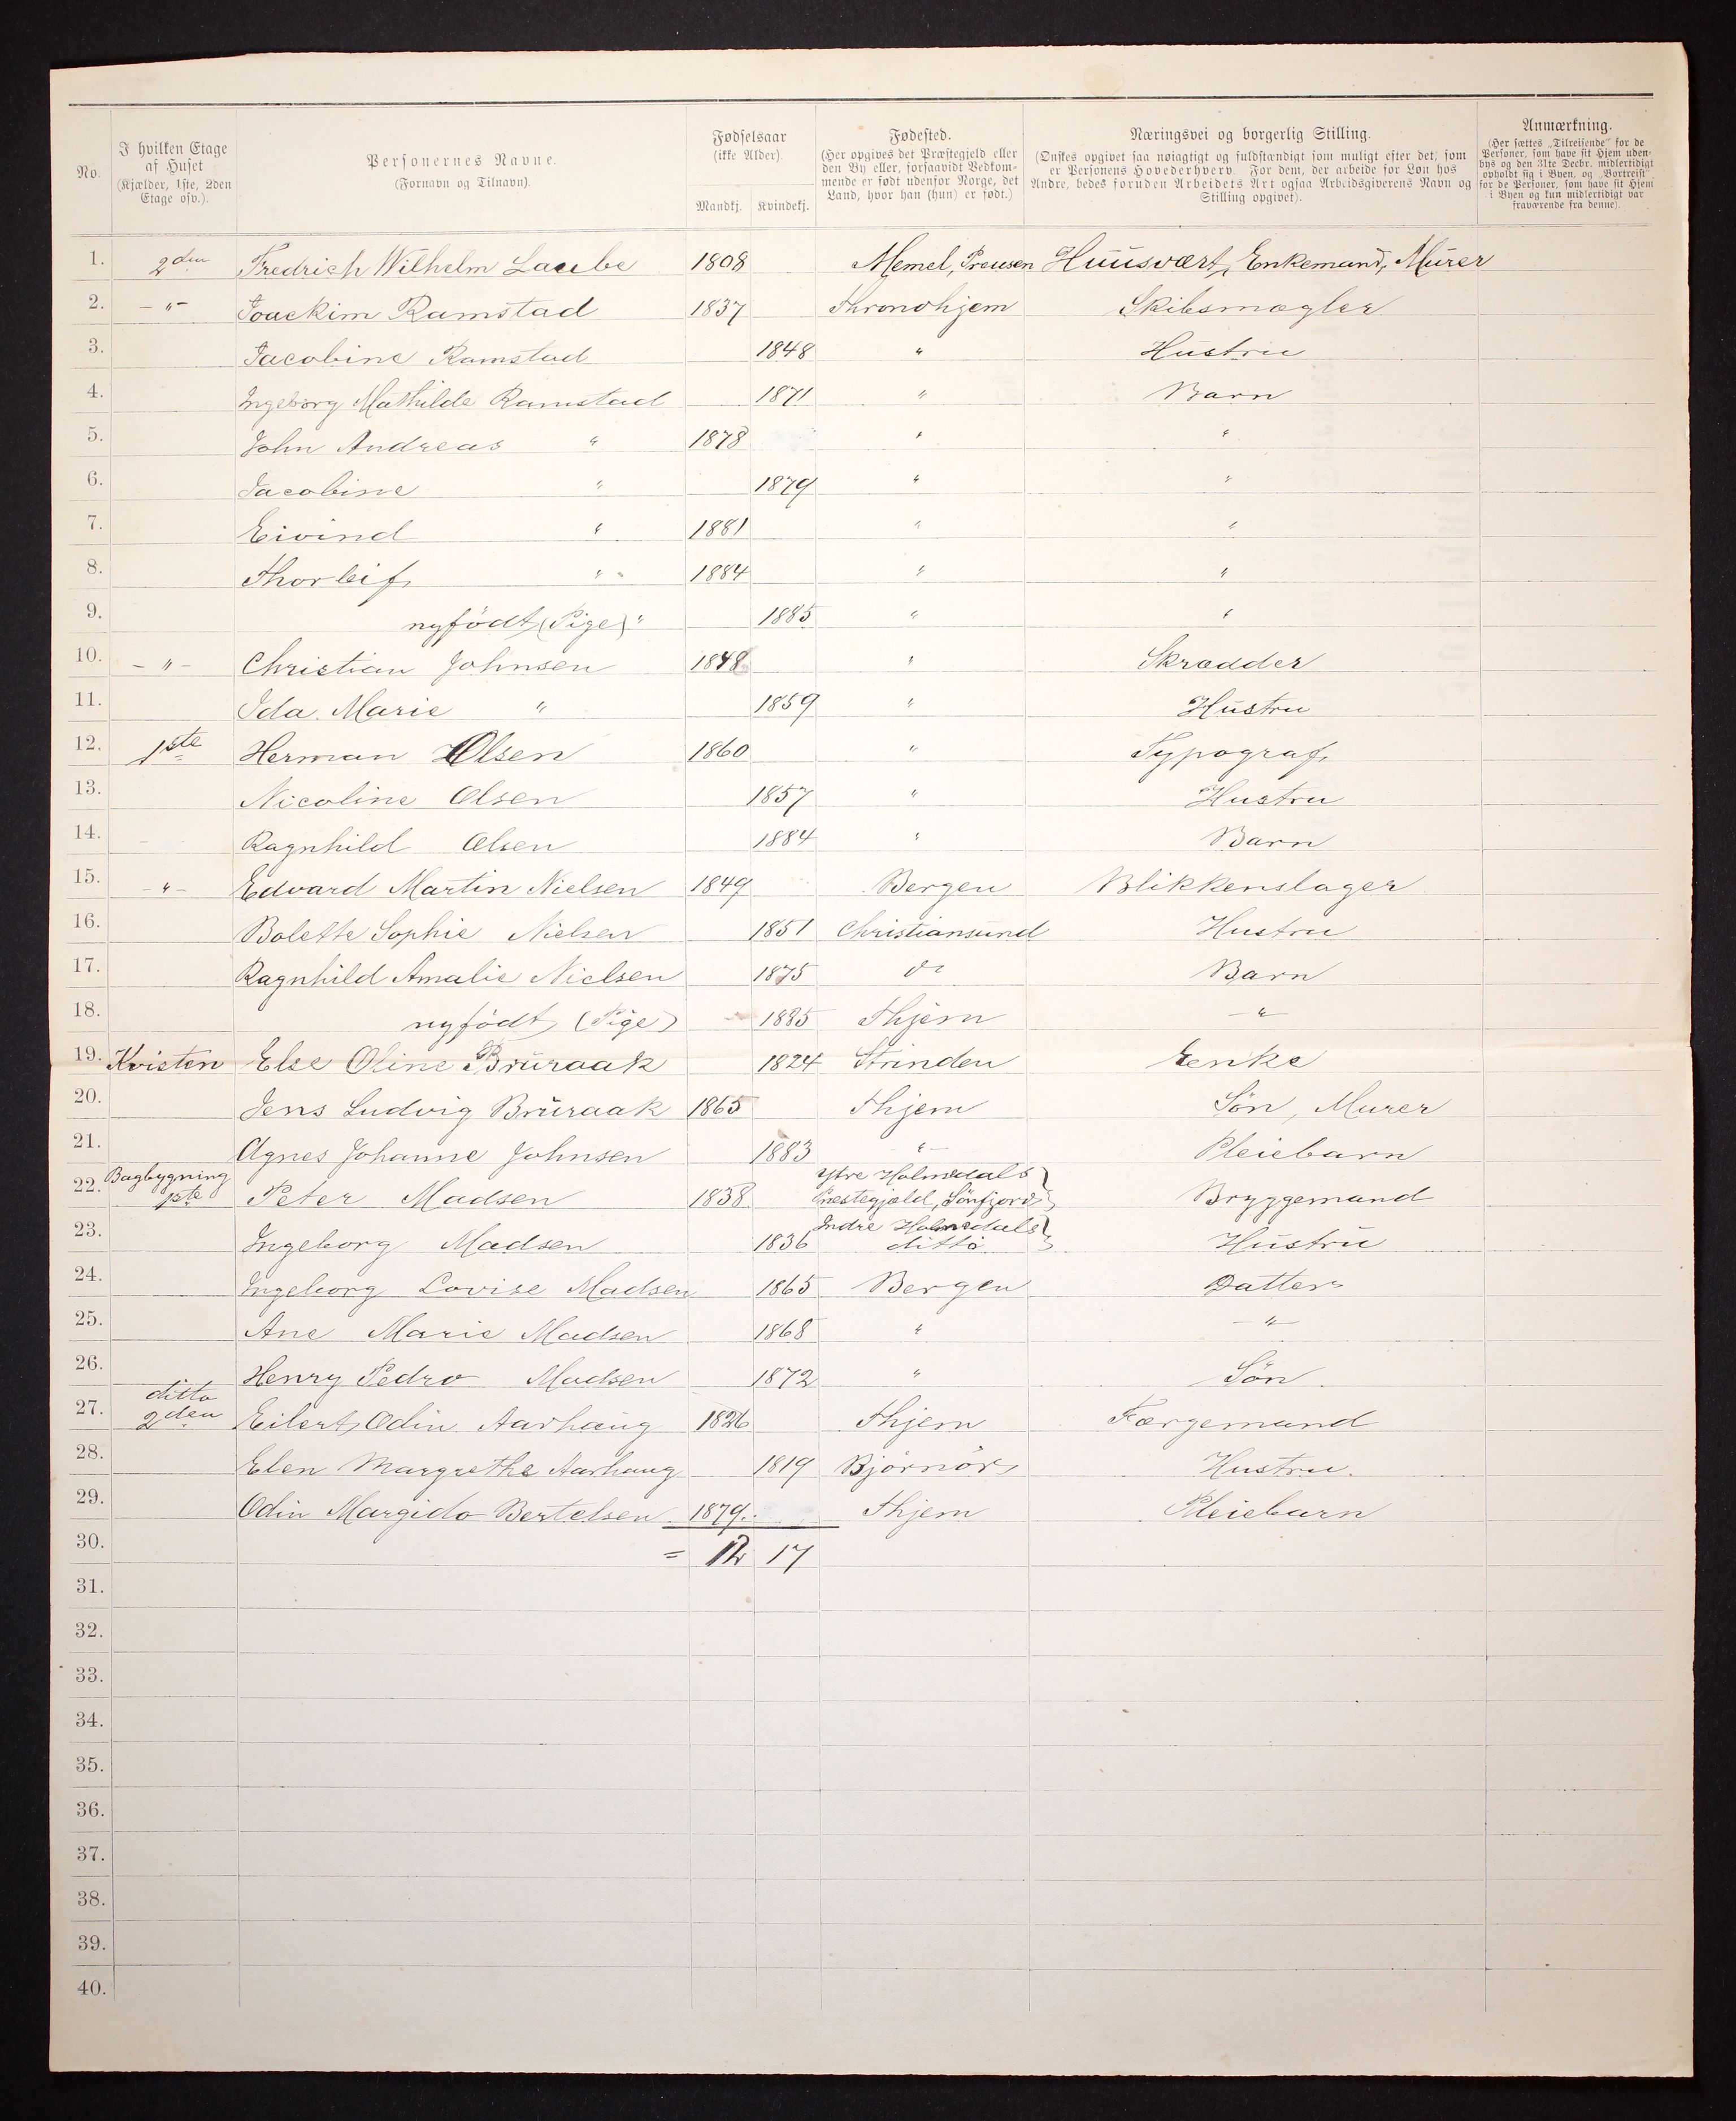 No.
I hvilken Etage
af Huset
(Kjælder, 1ste, 2den
Etage osv.).
Personernes Navne.
(Fornavn og Tilnavn).
Fødselsaar
(ikke Alder)
Mandkj. Kvindekj.
Fødested.
(Her opgives det Præstegjeld eller
den By eller, forsaavidt Vedkom-
mende er født udenfor Norge, det
Land, hvor han (hun) er født.)
Næringsvei og borgerlig Stilling.
(Ønskes opgivet saa nøiagtigt og fuldstændigt som muligt efter det, som
er Personens Hovederhverv. For dem, der arbeide for Løn hos
Andre, bedes foruden Arbeidets Art ogsaa Arbeidsgiverens Navn og
Stilling opgivet).
Anmærkning.
(Her sættes „Tilreisende" for de
Personer, som have sit Hjem uden-
bys og den 31te Decbr. midlertidigt
opholdt sig i Byen, og „Bortreist"
for de Personer, som have sit Hjem
i Byen og kun midlertidigt var
fraværende fra denne).
1. 2den Fredrich Wilhelm Laube 1808 Memel, Preusen Huusvært, Enkemand, Murer
2. -"- Joackim Ramstad 1837 Throndhjem Skibsmægler
3. Jacobine Ramstad 1848 " Hustru
4. Ingeborg Mathilde Ramstad 1871 " Barn
5. John Andreas " 1878 " "
6. Jacobine " 1879 " "
7. Eivind " 1881 " "
8. Thorleif " " 1884 " "
9. nyfödt (Pige) " 1885 " "
10. -"- Christian Johnsen 1848 " Skrædder
11. Ida Marie " 1859 " Hustru
12. 1ste Herman Olsen 1860 " Typograf
13. Nicoline Olsen 1857 " Hustru
14. Ragnhild Olsen 1884 " Barn
15. -"- Edvard Martin Nielsen 1849 Bergen Blikkenslager
16. Bolette Sophie Nielsen 1851 Christiansund Hustru
17. Ragnhild Amalie Nielsen 1875 do Barn
18. nyfödt (Pige) 1885 Thjem -"-
19. Kvisten Else Oline Bruraak 1824 Strinden Enke
20. Jens Ludvig Bruraak 1865 Thjem Sön, Murer
21. Agnes Johanne Johnsen 1883 "- Pleiebarn
22. Bagbygning
1ste Peter Madsen 1838 Ytre Holmedals
Præstegjæld, Sönfjord Bryggemand
23. Ingeborg Madsen 1836 Indre Holmedals
ditto Hustru
24. Ingeborg Lovise Madsen 1865 Bergen Datter
25. Ane Marie Madsen 1868 " -"-
26. Henry Pedro Madsen 1872 " Sön.
27. ditto
2den Eilert Odin Aarhaug 1826 Thjem Færgemand
28. Elen Margrethe Aarhaug 1819 Björnör Hustru.
29. Odin Margido Bertelsen 1879. Thjem Pleiebarn
30. = 12 17
31.
32.
33.
34.
35.
36.
37.
38.
39.
40.